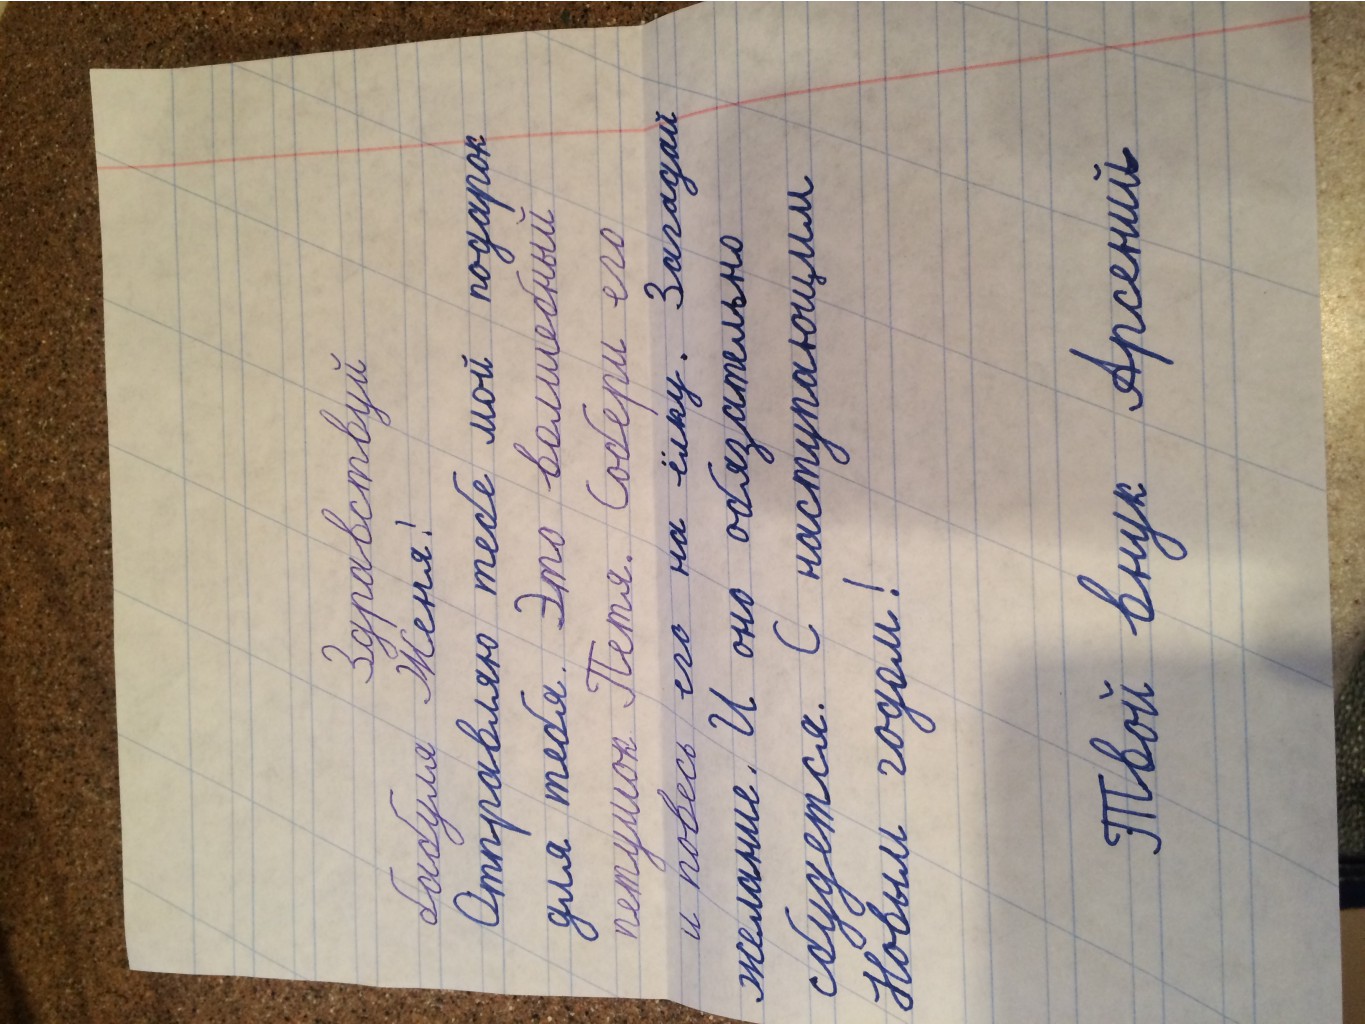 Здравствуй
бабуля Женя!
Отправляю тебе мой подарок
для тебя. Это волшебный
петушок Петя. Собери его
и повесь его на ёлку. Загадай
желание. И оно обязательно
сбудется. С наступающим
Новым годом!
Твой внук Арсений